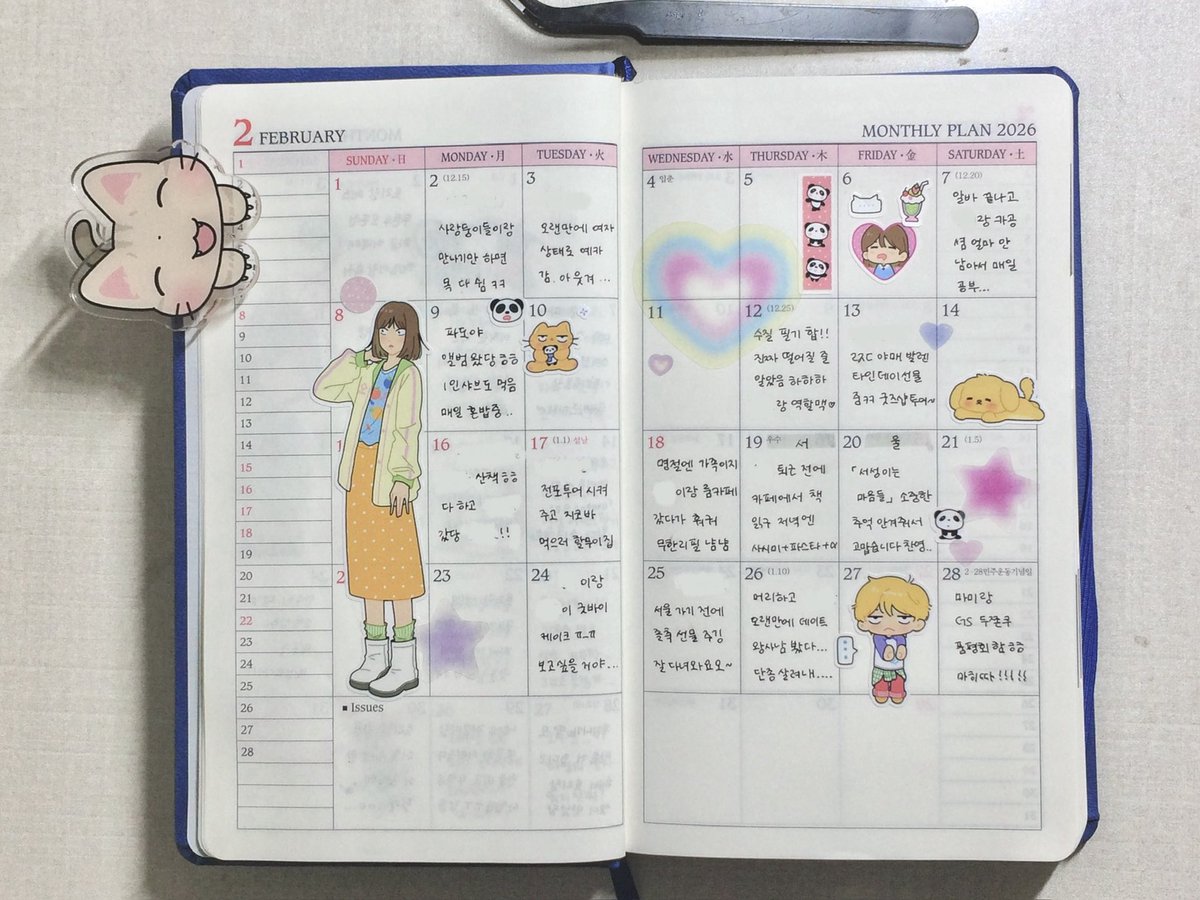 2 FEBRUARY
MONTHLY PLAN 2026
SUNDAY・日
MONDAY・月
TUESDAY・火
WEDNESDAY・水
THURSDAY・木
FRIDAY・金
SATURDAY・土
1
2 (12.15)
사랑둥이들이랑
만나기만 하면
목 다 쉼 ㅋㅋ
3
오랜만에 여자
상태로 예카
감. 아 웃겨...
4 입춘
5
6
7 (12.20)
알바 끝나고
랑 카공
셤 얼마 안
남아서 매일
공부...
8
9
파도야
앨범 왔당 ㅎㅎ
1인샤브도 먹음
매일 혼밥중..
10
11
12 (12.25)
수질 필기 합!!
진짜 떨어질 줄
알았음 하하하
랑 역할맥
13
굿즈샵투어~
14
16
산책 ㅎㅎ
다 하고
갔당 !!
17 (1.1) 설날
전포투어 시켜
주고 지코바
먹으러 할무이집
18
명절엔 가족이지
이랑 룸카페
갔다가 훠궈
무한리필 냠냠
19 우수
서
퇴근 전에
카페에서 책
읽구 저녁엔
사시미+파스타+α
20
울
「서성이는
마음들」 소중한
추억 안겨줘서
고맙습니다 찬영..
21 (1.5)
23
24
이랑
이 굿바이
케이크 ㅠ_ㅠ
보고싶을 거야...
25
서울 가기 전에
졸축 선물 주깅
잘 다녀와요오~
26 (1.10)
머리하고
오랜만에 데이트
왕사남 봤다...
단종 살려내....
27
28 2·28민주운동기념일
마미랑
GS 두쫀쿠
품평회 함 ㅎㅎ
마히따 !!!!!
■ Issues
1
8
9
10
11
12
13
14
15
16
17
18
19
20
21
22
23
24
25
26
27
28